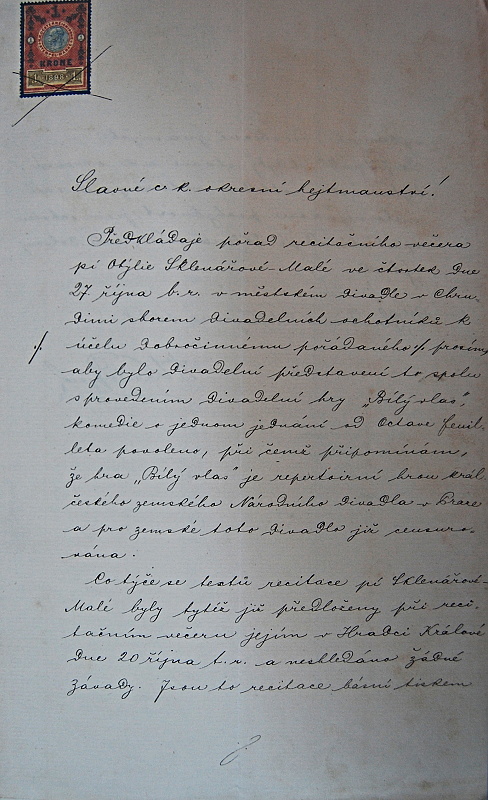 1
KRONE
1898
Slavné c. k. okresní hejtmanství!
Předkládaje pořad recitačního večera
pí Otýlie Sklenářové-Malé ve čtvrtek dne
27 října b. r. v městském divadle v Chru-
dimi sborem divadelních ochotníků k
účelu dobročinnému pořádaného ·/. prosím,
·/.
aby bylo divadelní představení to spolu
s provedením divadelní hry „Bílý vlas",
komedie o jednom jednání od Octave Feuil-
leta povoleno, při čemž připomínám,
že hra „Bílý vlas" je repertoirní hrou král.
českého zemského Národního divadla v Praze
a pro zemské toto divadlo již censuro-
vána.
Co týče se textů recitace pí Sklenářové-
Malé byly tytéž již předloženy při reci-
tačním večeru jejím v Hradci Králové
dne 20 října t. r. a neshledáno žádné
závady. Jsou to recitace básní tiskem